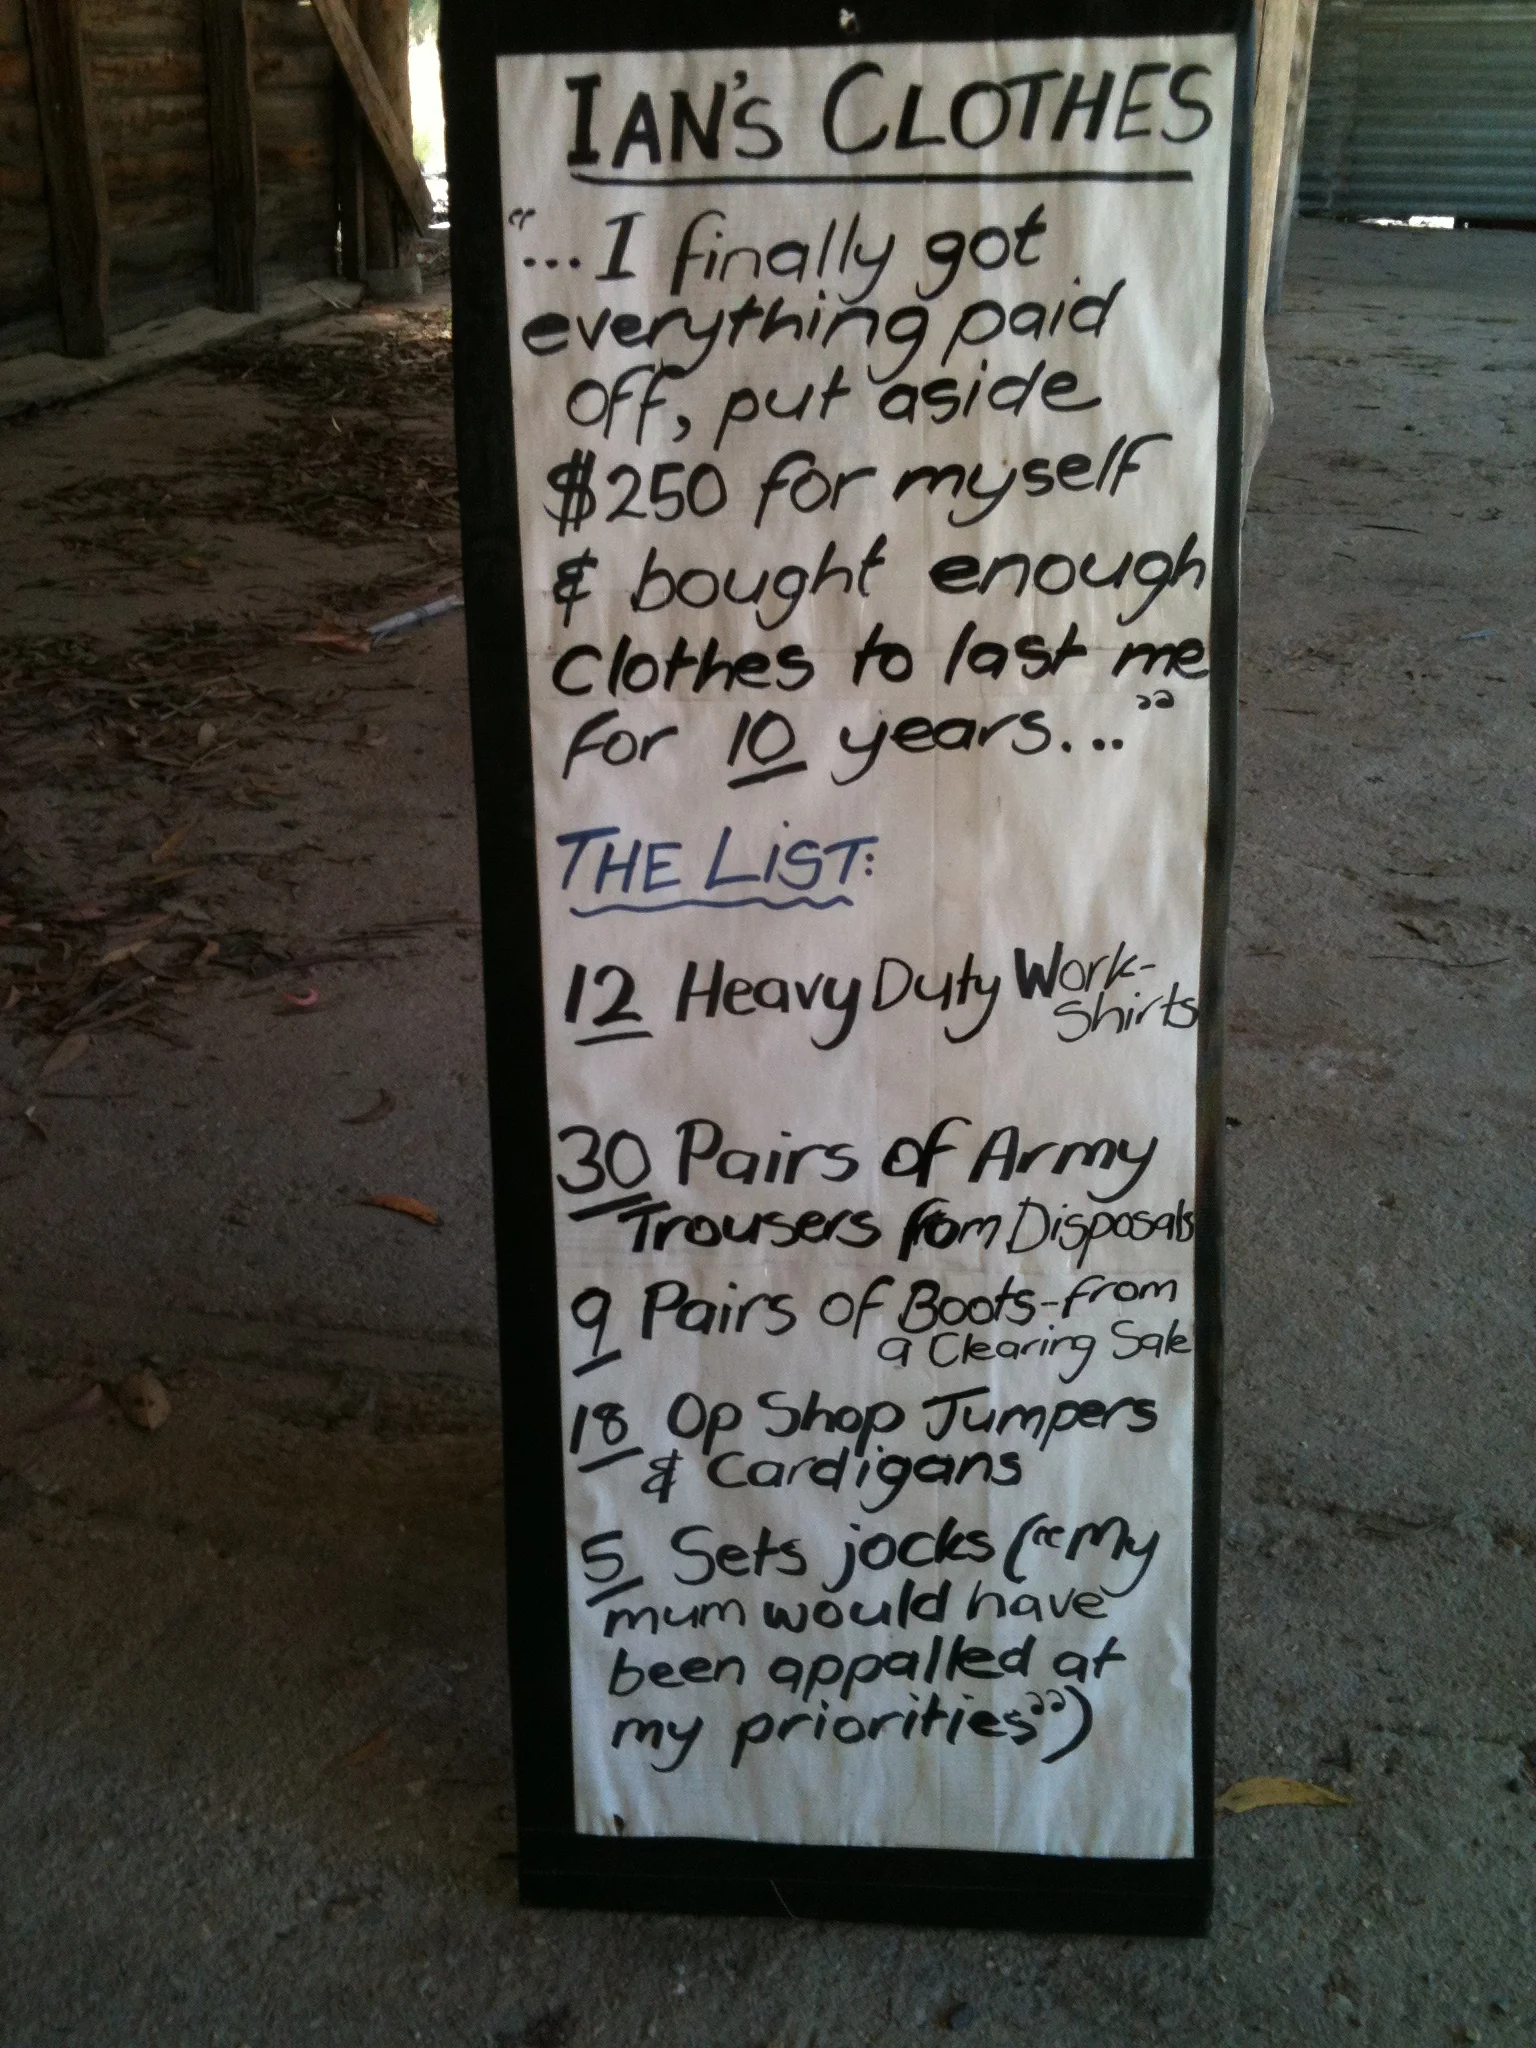 IAN'S CLOTHES
"...I finally got
everything paid
off, put aside
$250 for myself
& bought enough
Clothes to last me
for 10 years..."
THE LIST:
12 Heavy Duty Work-
Shirts
30 Pairs of Army
Trousers from Disposals
9 Pairs of Boots-from
a Clearing Sale
18 Op Shop Jumpers
& Cardigans
5 Sets jocks ("My
mum would have
been appalled at
my priorities")